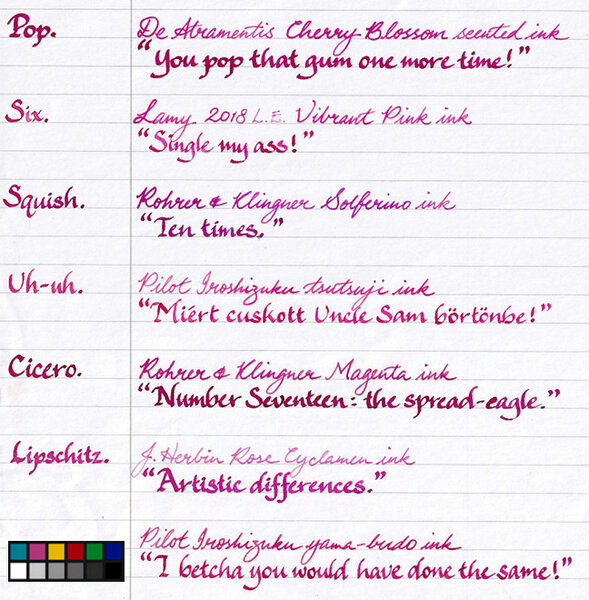 Pop. De Atramentis Cherry Blossom scented ink
“You pop that gum one more time!”
Six. Lamy 2018 L.E. Vibrant Pink ink
“Single my ass!”
Squish. Rohrer & Klingner Solferino ink
“Ten times.”
Uh-uh. Pilot Iroshizuku tsutsuji ink
“Miért cuskott Uncle Sam börtönbe!”
Cicero. Rohrer & Klingner Magenta ink
“Number Seventeen: the spread-eagle.”
Lipschitz. J. Herbin Rose Cyclamen ink
“Artistic differences.”
Pilot Iroshizuku yama-budo ink
“I betcha you would have done the same!”